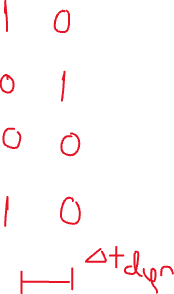 1 0
0 1
0 0
1 0
Δt dyn